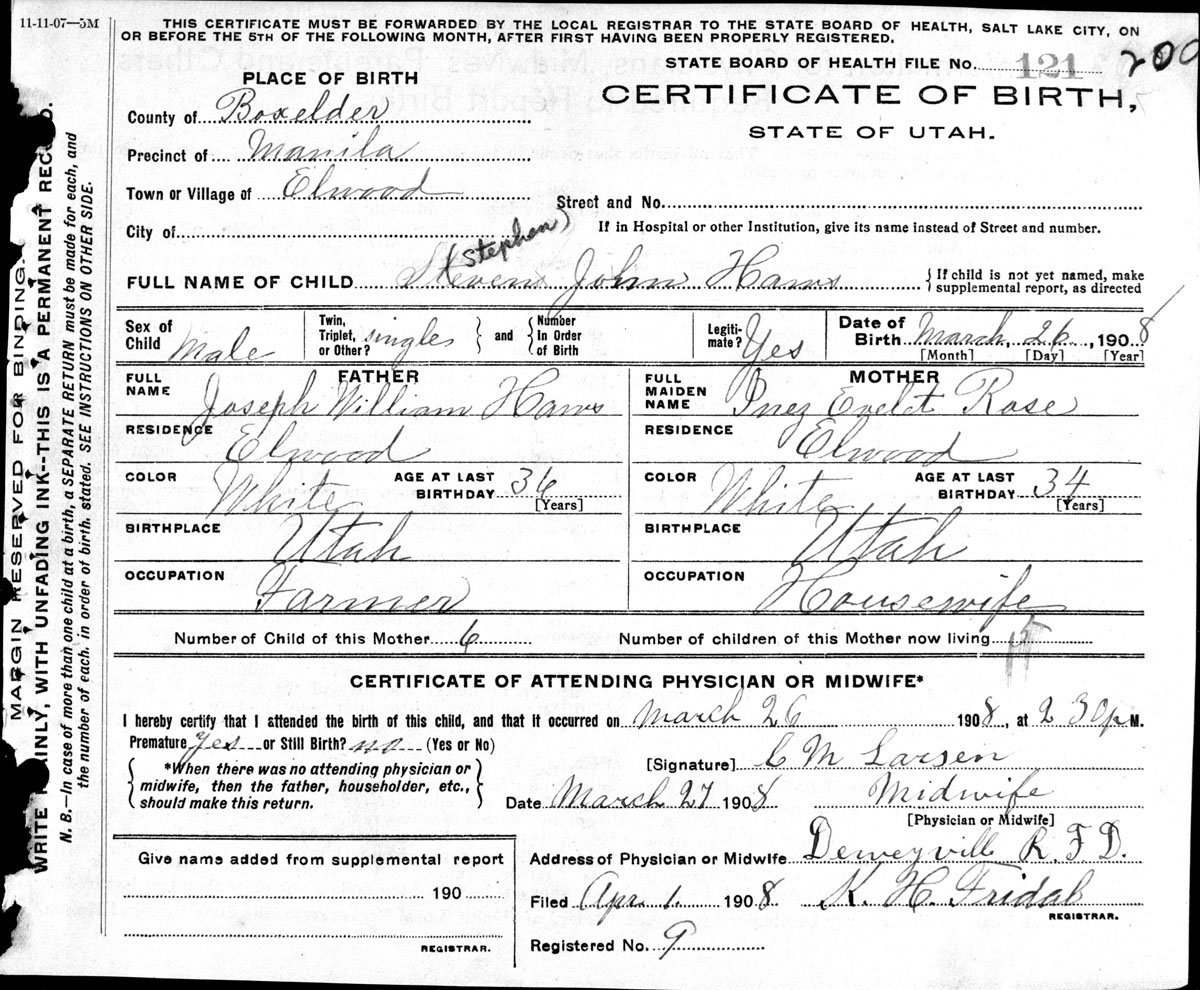 11-11-07—5M
THIS CERTIFICATE MUST BE FORWARDED BY THE LOCAL REGISTRAR TO THE STATE BOARD OF HEALTH, SALT LAKE CITY, ON
OR BEFORE THE 5TH OF THE FOLLOWING MONTH, AFTER FIRST HAVING BEEN PROPERLY REGISTERED.
STATE BOARD OF HEALTH FILE No. 121 200
PLACE OF BIRTH
CERTIFICATE OF BIRTH,
STATE OF UTAH.
County of Boxelder
Precinct of Manila
Town or Village of Elwood
Street and No.
City of
If in Hospital or other Institution, give its name instead of Street and number.
(Stephen)
FULL NAME OF CHILD Steven John Haws
{ If child is not yet named, make
supplemental report, as directed
Sex of Child Male
Twin, Triplet, or Other? singles } and { Number In Order of Birth
Legiti-mate? Yes
Date of Birth March 26, 1908
[Month] [Day] [Year]
FATHER
FULL NAME Joseph William Haws
RESIDENCE Elwood
COLOR White AGE AT LAST BIRTHDAY 36
[Years]
BIRTHPLACE Utah
OCCUPATION Farmer
MOTHER
FULL MAIDEN NAME Inez Evelt Rose
RESIDENCE Elwood
COLOR White AGE AT LAST BIRTHDAY 34
[Years]
BIRTHPLACE Utah
OCCUPATION Housewife
Number of Child of this Mother 6 Number of children of this Mother now living
CERTIFICATE OF ATTENDING PHYSICIAN OR MIDWIFE*
I hereby certify that I attended the birth of this child, and that it occurred on March 26 1908, at 2 30 p M.
Premature Yes or Still Birth? no (Yes or No)
{ *When there was no attending physician or
midwife, then the father, householder, etc.,
should make this return. }
[Signature] C M Larsen
Date March 27 1908 Midwife
[Physician or Midwife]
Give name added from supplemental report
190
REGISTRAR.
Address of Physician or Midwife Deweyville R. F. D.
Filed Apr. 1. 1908. K. H. Fridal
REGISTRAR.
Registered No. 9
MARGIN RESERVED FOR BINDING.
WRITE PLAINLY, WITH UNFADING INK--THIS IS A PERMANENT RECORD.
N. B.—In case of more than one child at a birth, a SEPARATE RETURN must be made for each, and
the number of each, in order of birth, stated. SEE INSTRUCTIONS ON OTHER SIDE.